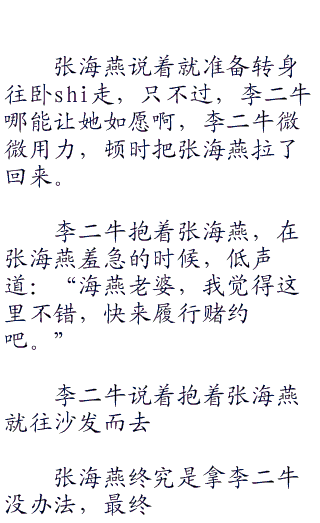 张海燕说着就准备转身
往卧shi走，只不过，李二牛
哪能让她如愿啊，李二牛微
微用力，顿时把张海燕拉了
回来。
李二牛抱着张海燕，在
张海燕羞急的时候，低声
道：“海燕老婆，我觉得这
里不错，快来履行赌约
吧。”
李二牛说着抱着张海燕
就往沙发而去
张海燕终究是拿李二牛
没办法，最终